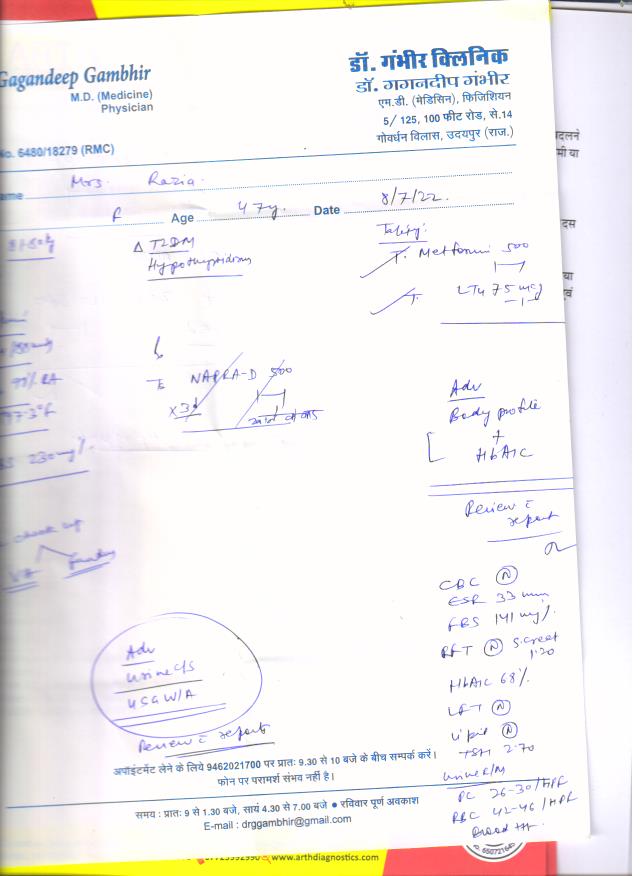 Gagandeep Gambhir
M.D. (Medicine)
Physician
No. 6480/18279 (RMC)
डॉ. गंभीर क्लिनिक
डॉ. गगनदीप गंभीर
एम.डी. (मेडिसिन), फिजिशियन
5/ 125, 100 फीट रोड, से.14
गोवर्धन विलास, उदयपुर (राज.)
ame Mrs. Razia
F Age 47y. Date 8/7/22.
Δ T2DM
Hypothyroidism
T. Metformin 500
T. LT4 75 mcg
NAPRA-D 500
x 3d
99% RA
97.3°F
230 mg%
check up
Adv
Body profile
+
HbA1C
Review c̄
report
CBC (N)
ESR 33 mm
FBS 141 mg%
RFT (N) S. Creat
1.20
HbA1C 68%
LFT (N)
Lipid (N)
TSH 2.70
Urine R/M
PC 26-30/HPF
RBC 42-46/HPF
Blood +++
Adv
Urine C/S
USG W/A
Review c̄ report
अपॉइंटमेंट लेने के लिये 9462021700 पर प्रातः 9.30 से 10 बजे के बीच सम्पर्क करें।
फोन पर परामर्श संभव नहीं है।
समय : प्रातः 9 से 1.30 बजे, सायं 4.30 से 7.00 बजे ● रविवार पूर्ण अवकाश
E-mail : drggambhir@gmail.com
www.arthdiagnostics.com